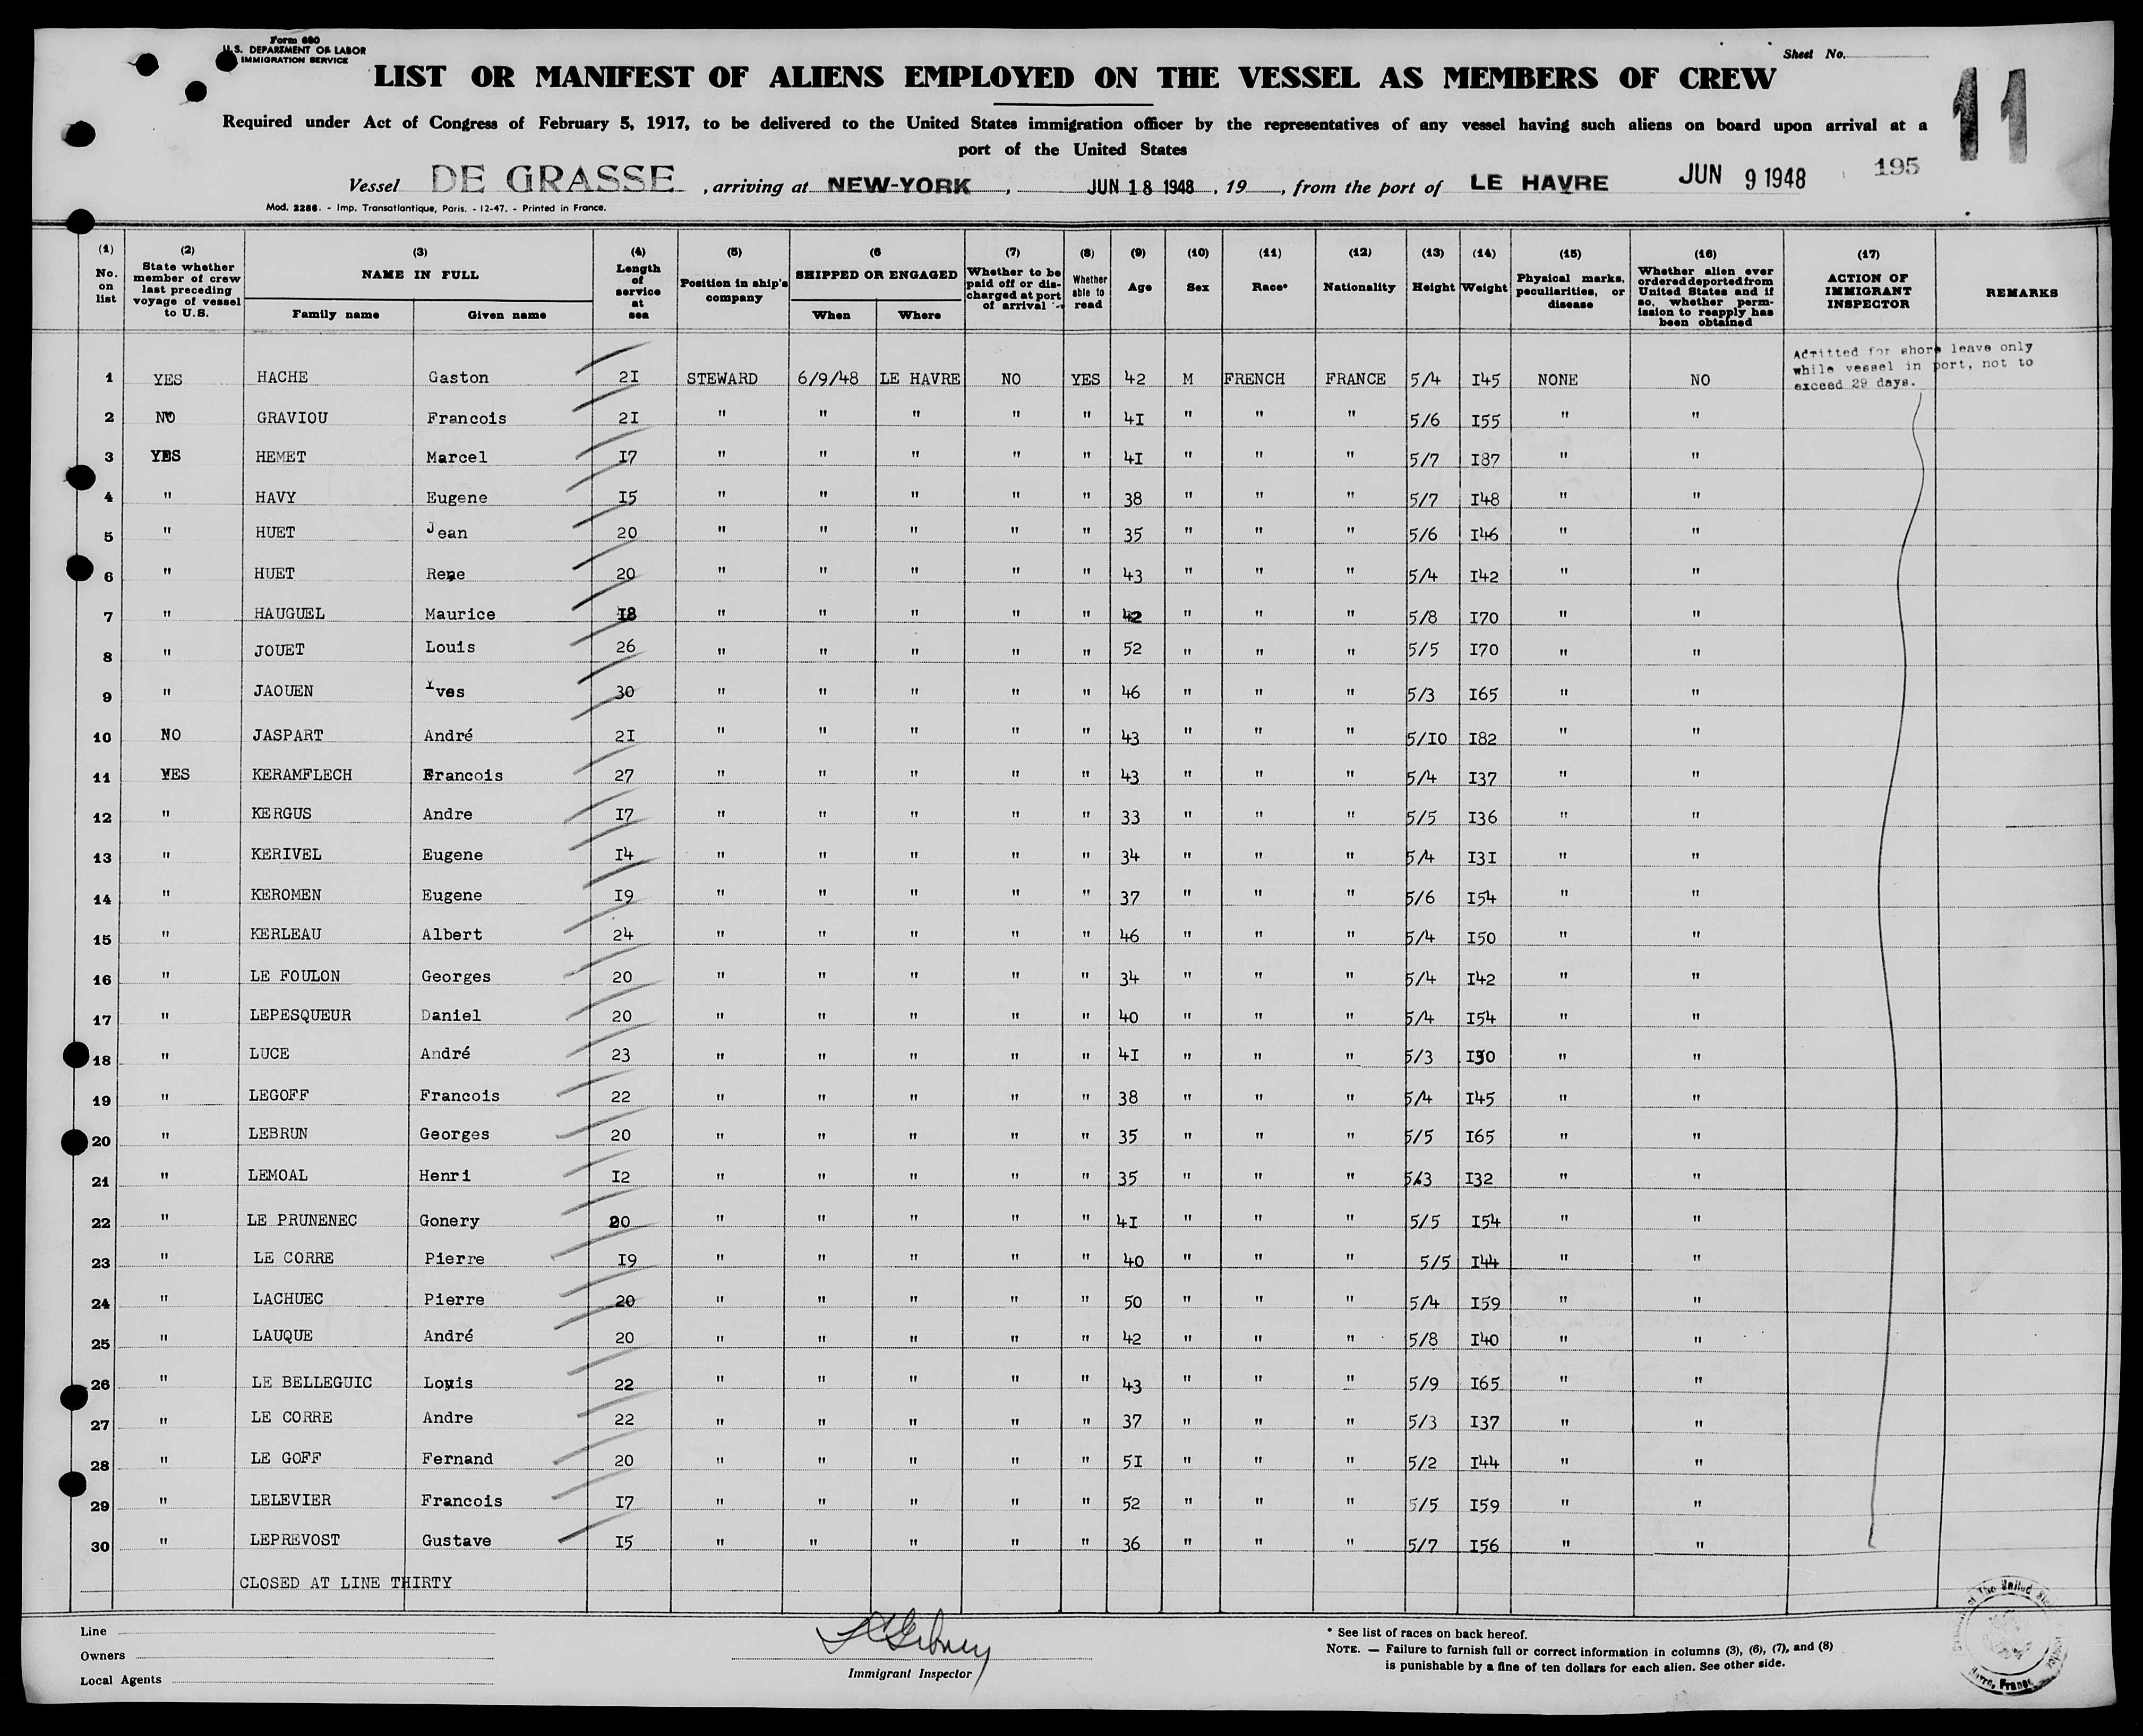 Form 680
U.S. DEPARTMENT OF LABOR
IMMIGRATION SERVICE
Sheet No.
LIST OR MANIFEST OF ALIENS EMPLOYED ON THE VESSEL AS MEMBERS OF CREW
11
Required under Act of Congress of February 5, 1917, to be delivered to the United States immigration officer by the representatives of any vessel having such aliens on board upon arrival at a
port of the United States
Vessel DE GRASSE, arriving at NEW-YORK, JUN 18 1948, 19 , from the port of LE HAVRE JUN 9 1948 195
Mod. 2286. - Imp. Transatlantique, Paris. - 12-47. - Printed in France.
(1) No. on list
(2) State whether member of crew last preceding voyage of vessel to U.S.
(3) NAME IN FULL Family name Given name
(4) Length of service at sea
(5) Position in ship's company
(6 SHIPPED OR ENGAGED When Where
(7) Whether to be paid off or discharged at port of arrival
(8) Whether able to read
(9) Age
(10) Sex
(11) Race*
(12) Nationality
(13) Height
(14) Weight
(15) Physical marks, peculiarities, or disease
(16) Whether alien ever ordered deported from United States and if so, whether permission to reapply has been obtained
(17) ACTION OF IMMIGRANT INSPECTOR
REMARKS
Admitted for shore leave only
while vessel in port, not to
exceed 29 days.
1 YES HACHE Gaston 2I STEWARD 6/9/48 LE HAVRE NO YES 42 M FRENCH FRANCE 5/4 I45 NONE NO
2 NO GRAVIOU Francois 2I " " " " " 4I " " " 5/6 I55 " "
3 YES HEMET Marcel I7 " " " " " 4I " " " 5/7 I87 " "
4 " HAVY Eugene I5 " " " " " 38 " " " 5/7 I48 " "
5 " HUET Jean 20 " " " " " 35 " " " 5/6 I46 " "
6 " HUET Rene 20 " " " " " 43 " " " 5/4 I42 " "
7 " HAUGUEL Maurice I8 " " " " " 42 " " " 5/8 I70 " "
8 " JOUET Louis 26 " " " " " 52 " " " 5/5 I70 " "
9 " JAOUEN Yves 30 " " " " " 46 " " " 5/3 I65 " "
10 NO JASPART André 2I " " " " " 43 " " " 5/I0 I82 " "
11 YES KERAMFLECH Francois 27 " " " " " 43 " " " 5/4 I37 " "
12 " KERGUS Andre I7 " " " " " 33 " " " 5/5 I36 " "
13 " KERIVEL Eugene I4 " " " " " 34 " " " 5/4 I3I " "
14 " KEROMEN Eugene I9 " " " " " 37 " " " 5/6 I54 " "
15 " KERLEAU Albert 24 " " " " " 46 " " " 5/4 I50 " "
16 " LE FOULON Georges 20 " " " " " 34 " " " 5/4 I42 " "
17 " LEPESQUEUR Daniel 20 " " " " " 40 " " " 5/4 I54 " "
18 " LUCE André 23 " " " " " 4I " " " 5/3 " "
19 " LEGOFF Francois 22 " " " " " 38 " " " 5/4 I45 " "
20 " LEBRUN Georges 20 " " " " " 35 " " " 5/5 I65 " "
21 " LEMOAL Henri I2 " " " " " 35 " " " 5/3 I32 " "
22 " LE PRUNENEC Gonery 20 " " " " " 4I " " " 5/5 I54 " "
23 " LE CORRE Pierre I9 " " " " " 40 " " " 5/5 I44 " "
24 " LACHUEC Pierre 20 " " " " " 50 " " " 5/4 I59 " "
25 " LAUQUE André 20 " " " " " 42 " " " 5/8 I40 " "
26 " LE BELLEGUIC Louis 22 " " " " " 43 " " " 5/9 I65 " "
27 " LE CORRE Andre 22 " " " " " 37 " " " 5/3 I37 " "
28 " LE GOFF Fernand 20 " " " " " 5I " " " 5/2 I44 " "
29 " LELEVIER Francois I7 " " " " " 52 " " " 5/5 I59 " "
30 " LEPREVOST Gustave I5 " " " " " 36 " " " 5/7 I56 " "
CLOSED AT LINE THIRTY
Line
Owners
Local Agents
Immigrant Inspector
* See list of races on back hereof.
NOTE. — Failure to furnish full or correct information in columns (3), (6), (7), and (8)
is punishable by a fine of ten dollars for each alien. See other side.